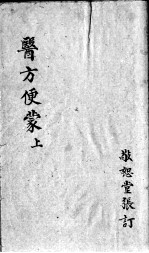 醫方便蒙上
敬恕堂張訂